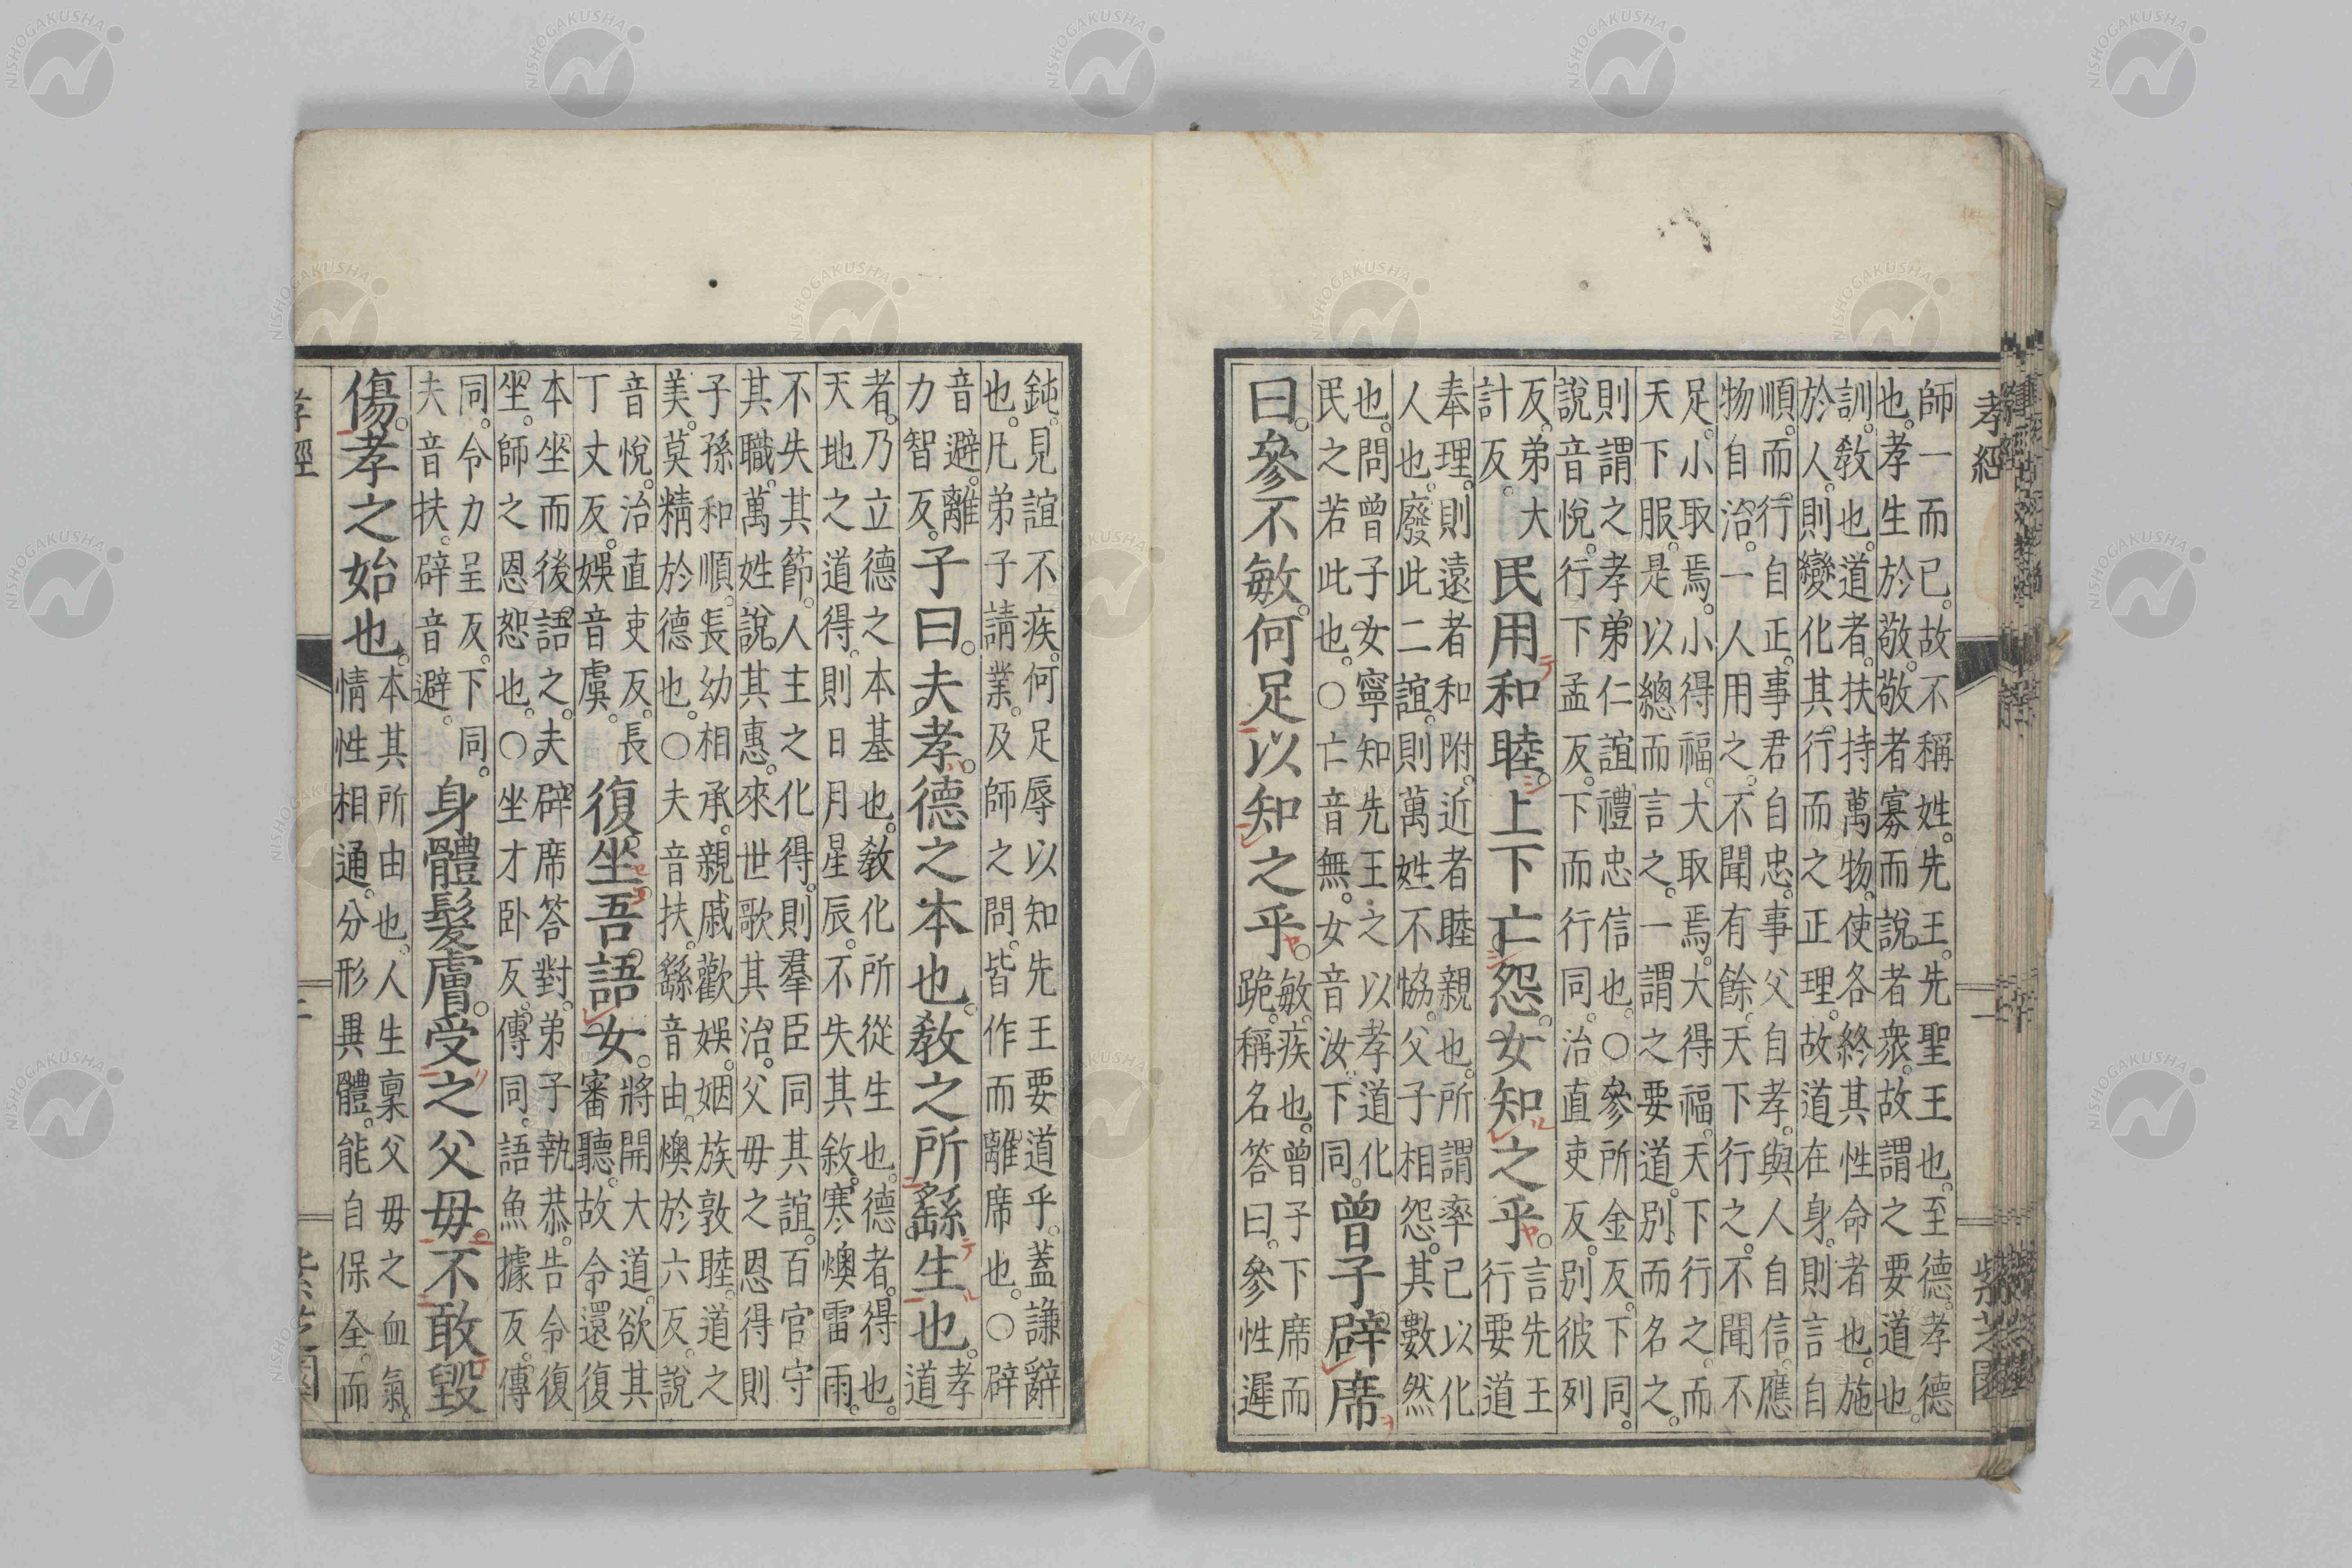 孝經
一
紫芝園
師一而已。故不稱姓。先王。先聖王也。至德。孝德
也。孝生於敬。敬者寡而說者衆。故謂之要道也。
訓。敎也。道者。扶持萬物。使各終其性命者也。施
於人。則變化其行。而之正理。故道在身。則言自
順。而行自正。事君自忠。事父自孝。與人自信。應
物自治。一人用之。不聞有餘。天下行之。不聞不
足。小取焉。小得福。大取焉。大得福。天下行之。而
天下服。是以總而言之。一謂之要道。別而名之。
則謂之孝弟仁誼禮忠信也。○參所金反。下同。
說音悅。行下孟反。下而行同。治直吏反。別彼列
反。弟大
計反。
民用和睦。上下亡怨。女知之乎。
言先王
行要道
奉理。則遠者和附。近者睦親也。所謂率己以化
人也。廢此二誼。則萬姓不恊。父子相怨。其數然
也。問曾子女寧知先王之以孝道化
民之若此也。○亡音無。女音汝。下同。
曾子辟席
曰。參不敏。何足以知之乎。
敏。疾也。曾子下席而
跪。稱名答曰。參性遲
鈍。見誼不疾。何足辱以知先王要道乎。蓋謙辭
也。凡弟子請業。及師之問。皆作而離席也。○辟
音避。離
力智反。
子曰。夫孝。德之本也。敎之所繇生也。
孝
道
者。乃立德之本基也。敎化所從生也。德者。得也。
天地之道得。則日月星辰。不失其敘。寒燠雷雨。
不失其節。人主之化得。則羣臣同其誼。百官守
其職。萬姓說其惠。來世歌其治。父毋之恩得。則
子孫和順。長幼相承。親戚歡娛。姻族敦睦。道之
美。莫精於德也。○夫音扶。繇音由。燠於六反。說
音悅。治直吏反。長
丁丈反。娛音虞。
復坐吾語女。
將開大道。欲其
審聽。故令還復
本坐而後語之。夫辟席答對。弟子執恭。告令復
坐。師之恩恕也。○坐才臥反。傳同。語魚據反。傳
同。令力呈反。下同。
夫音扶。辟音避。
身體髮膚。受之父毋。不敢毀
傷。孝之始也。
本其所由也。人生稟父毋之血氣。
情性相通。分形異體。能自保全。而
孝經
NISHOGAKUSHA